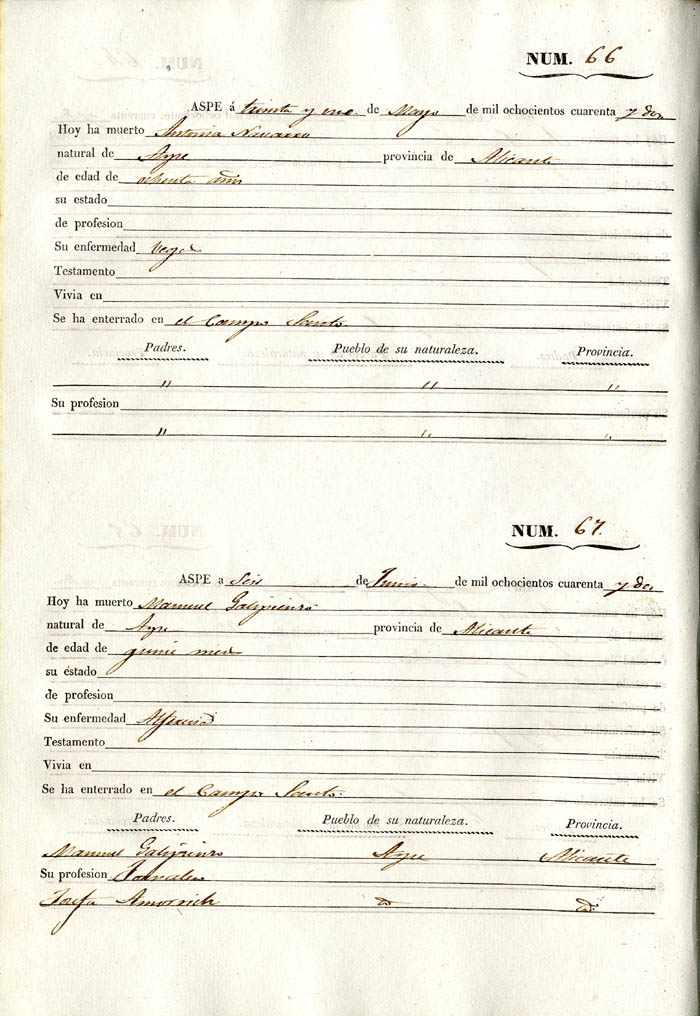 NUM. 66
ASPE á treinta y uno de Mayo de mil ochocientos cuarenta y dos
Hoy ha muerto Antonia Navarro
natural de Aspe provincia de Alicante
de edad de ochenta años
su estado
de profesion
Su enfermedad Vegez
Testamento
Vivia en
Se ha enterrado en el Campo Santo.
Padres. Pueblo de su naturaleza. Provincia.
" " "
Su profesion
" " "
NUM. 67.
ASPE a Seis de Junio de mil ochocientos cuarenta y dos
Hoy ha muerto Manuel Galipienso
natural de Aspe provincia de Alicante
de edad de quince meses
su estado
de profesion
Su enfermedad Alferecia
Testamento
Vivia en
Se ha enterrado en el Campo Santo.
Padres. Pueblo de su naturaleza. Provincia.
Manuel Galipienso Aspe Alicante
Su profesion Jornalero
Josefa Amorrich